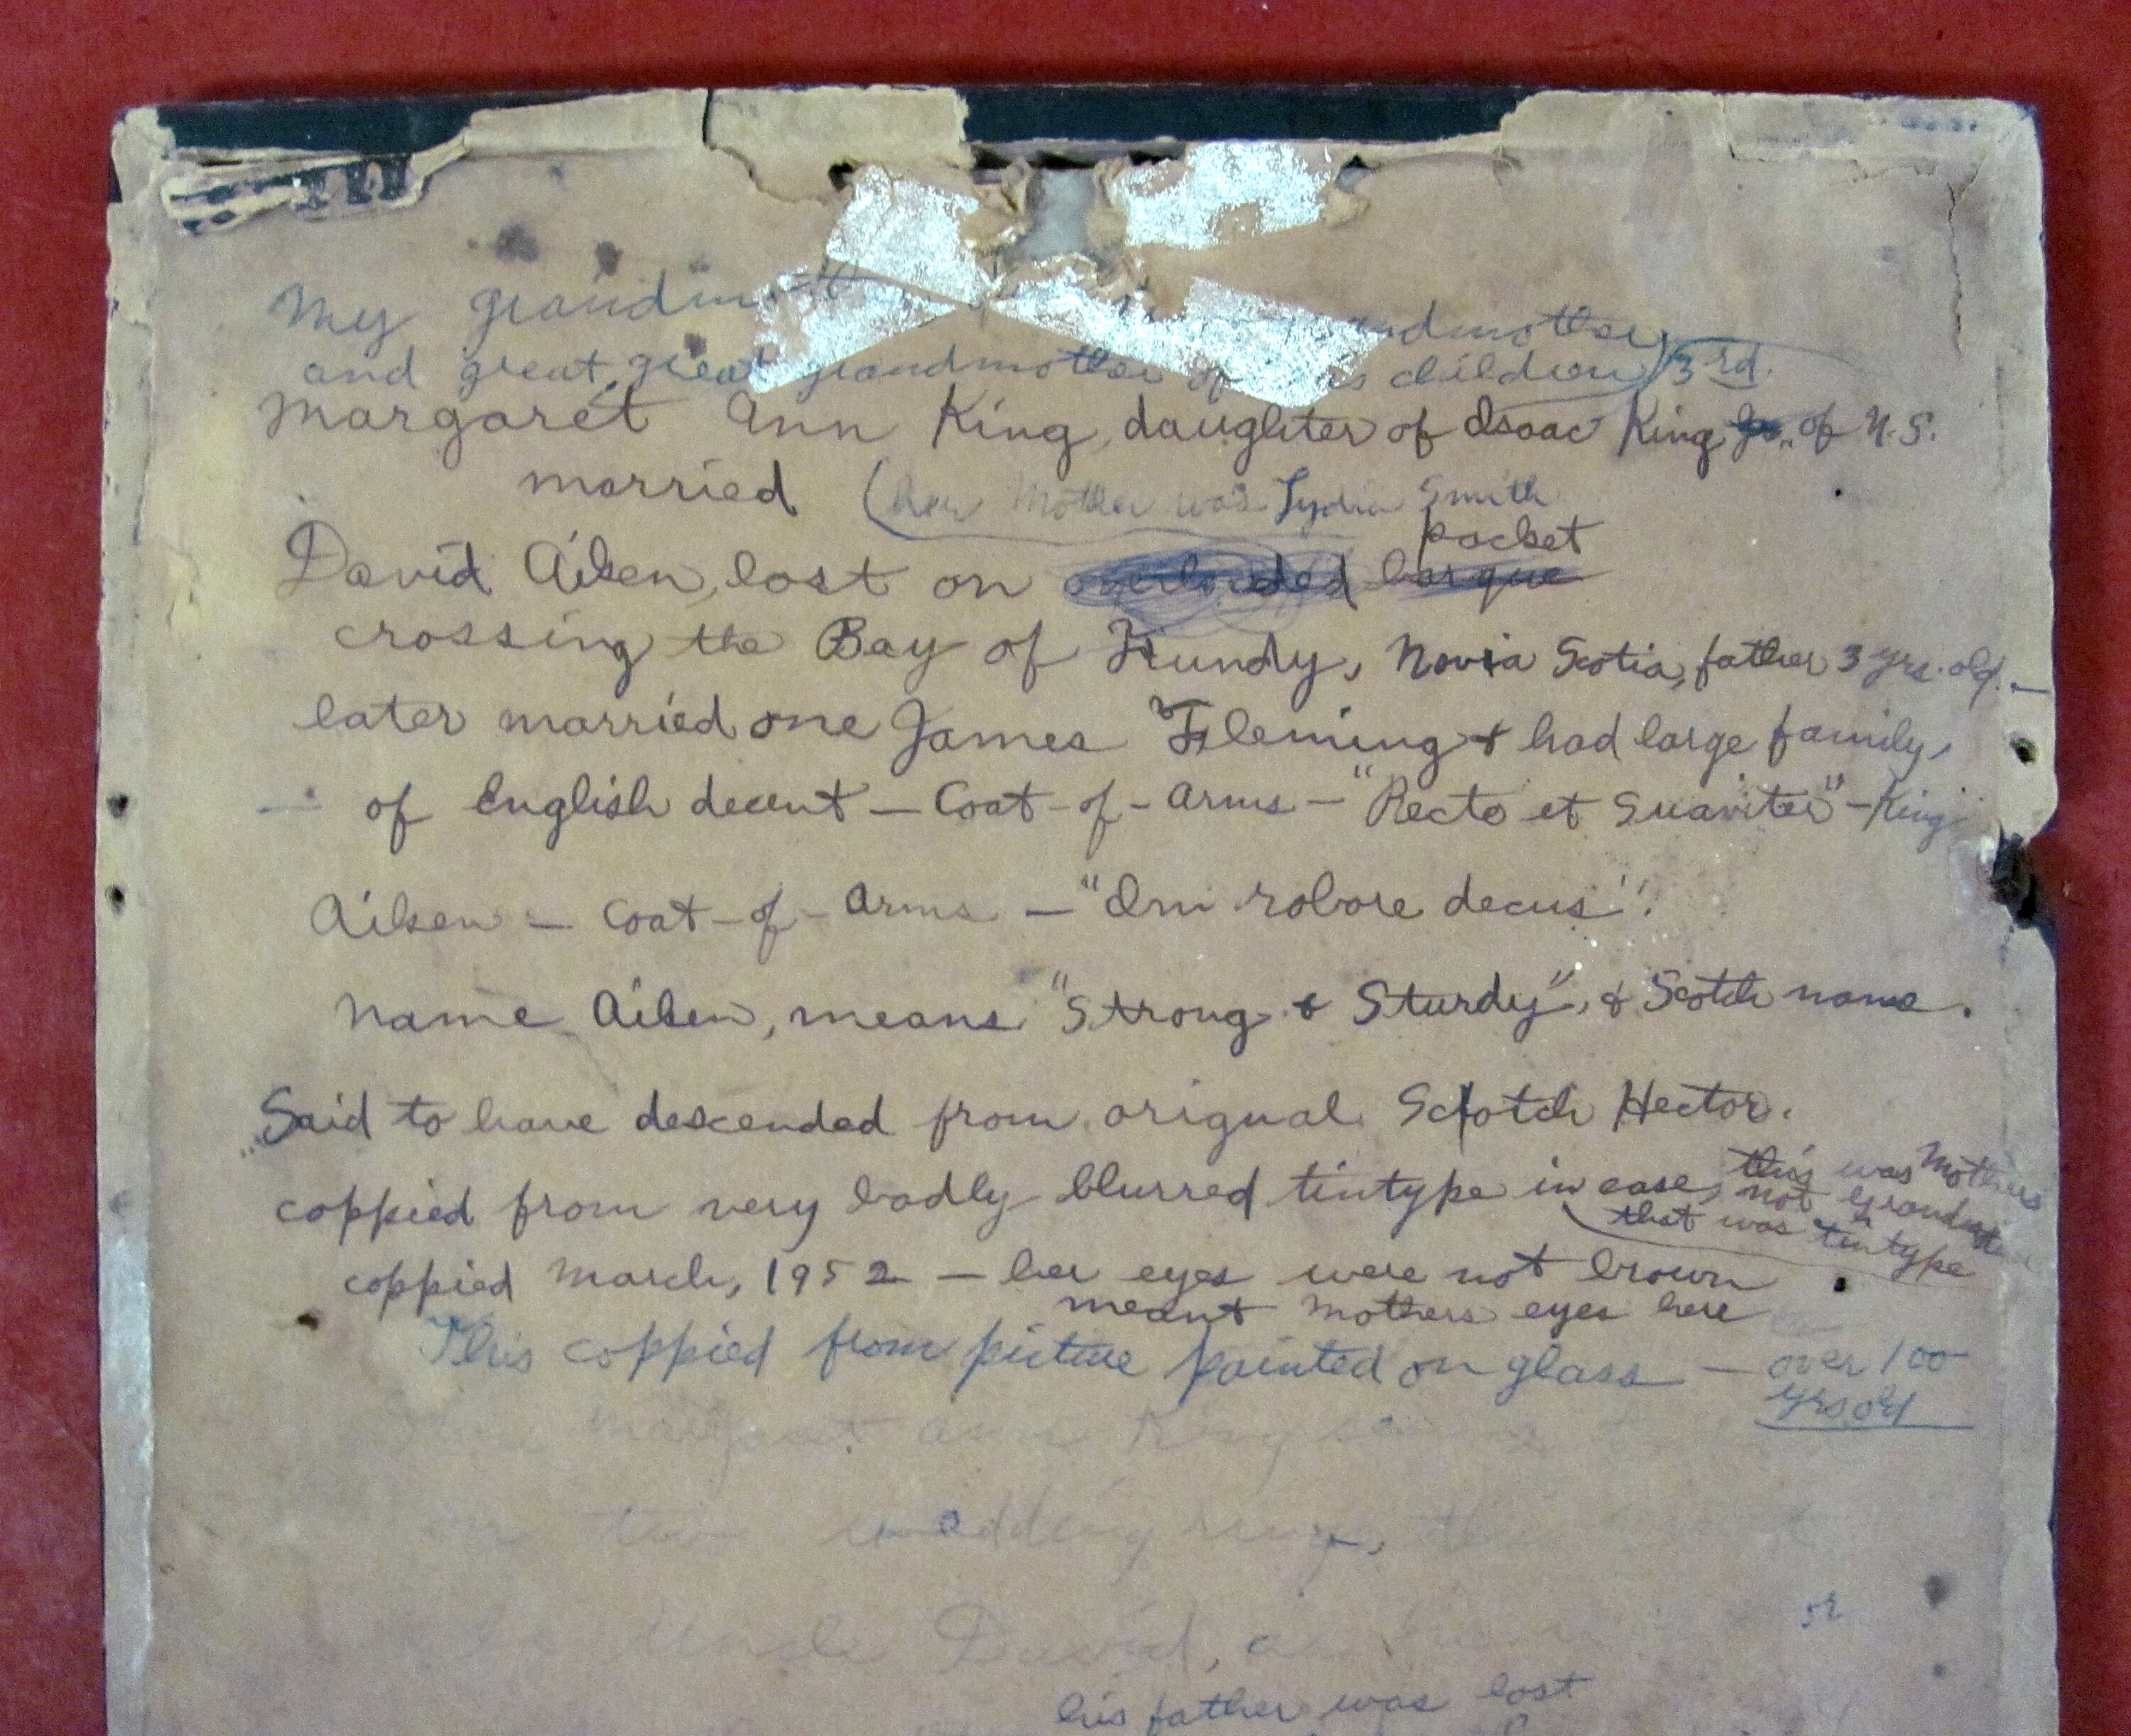 My grandmother
and great, great grandmother of children) 3rd.
Margaret Ann King, daughter of Isaac King of N.S.
married (her Mother was Lydia Smith
pocket
David Ailsen, lost on overloaded barque
crossing the Bay of Fundy, Novia Scotia, father 3 yrs. old. —
later married one James Fleming & had large family,
of English decent — Coat-of-arms — "Recto et Suaviter" — King
Ailsen — Coat-of-arms — " robore decus".
name Ailsen, means "Strong & Sturdy", & Scotch name.
Said to have descended from orignal Scotch Hector.
coppied from very badly blurred tintype in case, this was Mothers
not
that was tintype
coppied March, 1952 — her eyes were not brown
meant Mothers eyes here
This coppied from picture painted on glass — over 100
yrs old
Margaret Ann King
wedding
Uncle David,
his father was lost